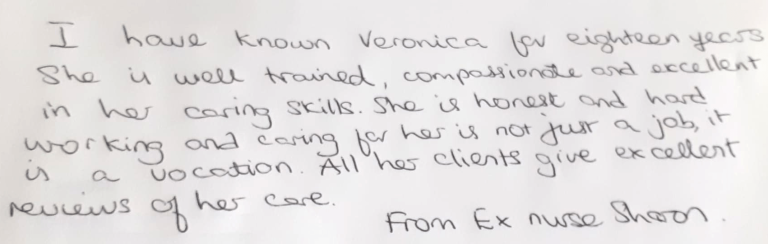 I have known Veronica for eighteen years
She is well trained, compassionate and excellent
in her caring skills. She is honest and hard
working and caring for her is not just a job, it
is a vocation. All her clients give excellent
reviews of her care.
From Ex nurse Sharon.